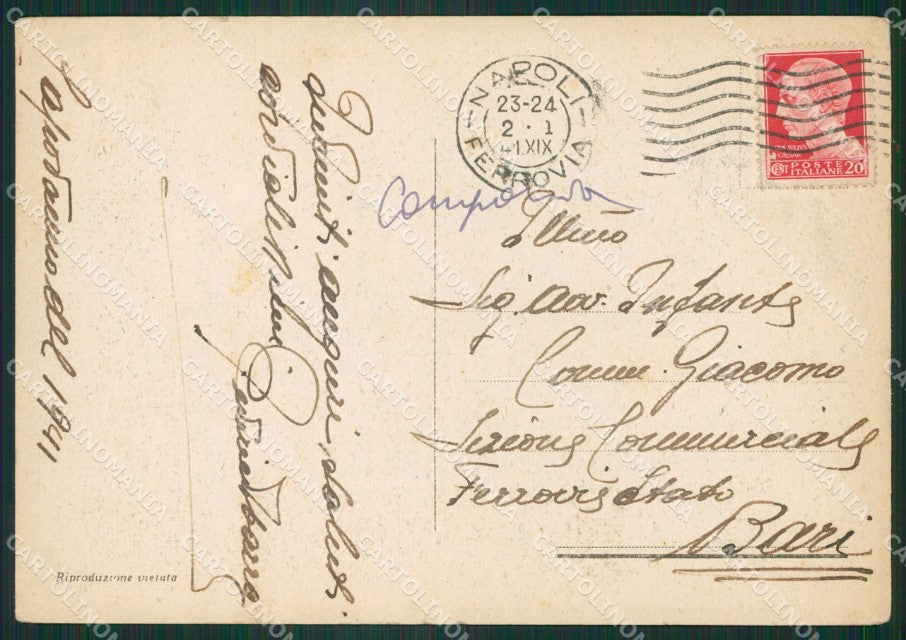 NAPOLI
23-24
2 · 1
41 XIX
FERROVIA
POSTE
ITALIANE
CENT 20
Ill/mo
Sig. Avv. Infante
Comm. Giacomo
Sezione Commerciale
Ferrovie Stato
Bari
Infiniti auguri, saluti
cordialissimi
Capodanno del 1941
Riproduzione vietata
CARTOLINOMANIA